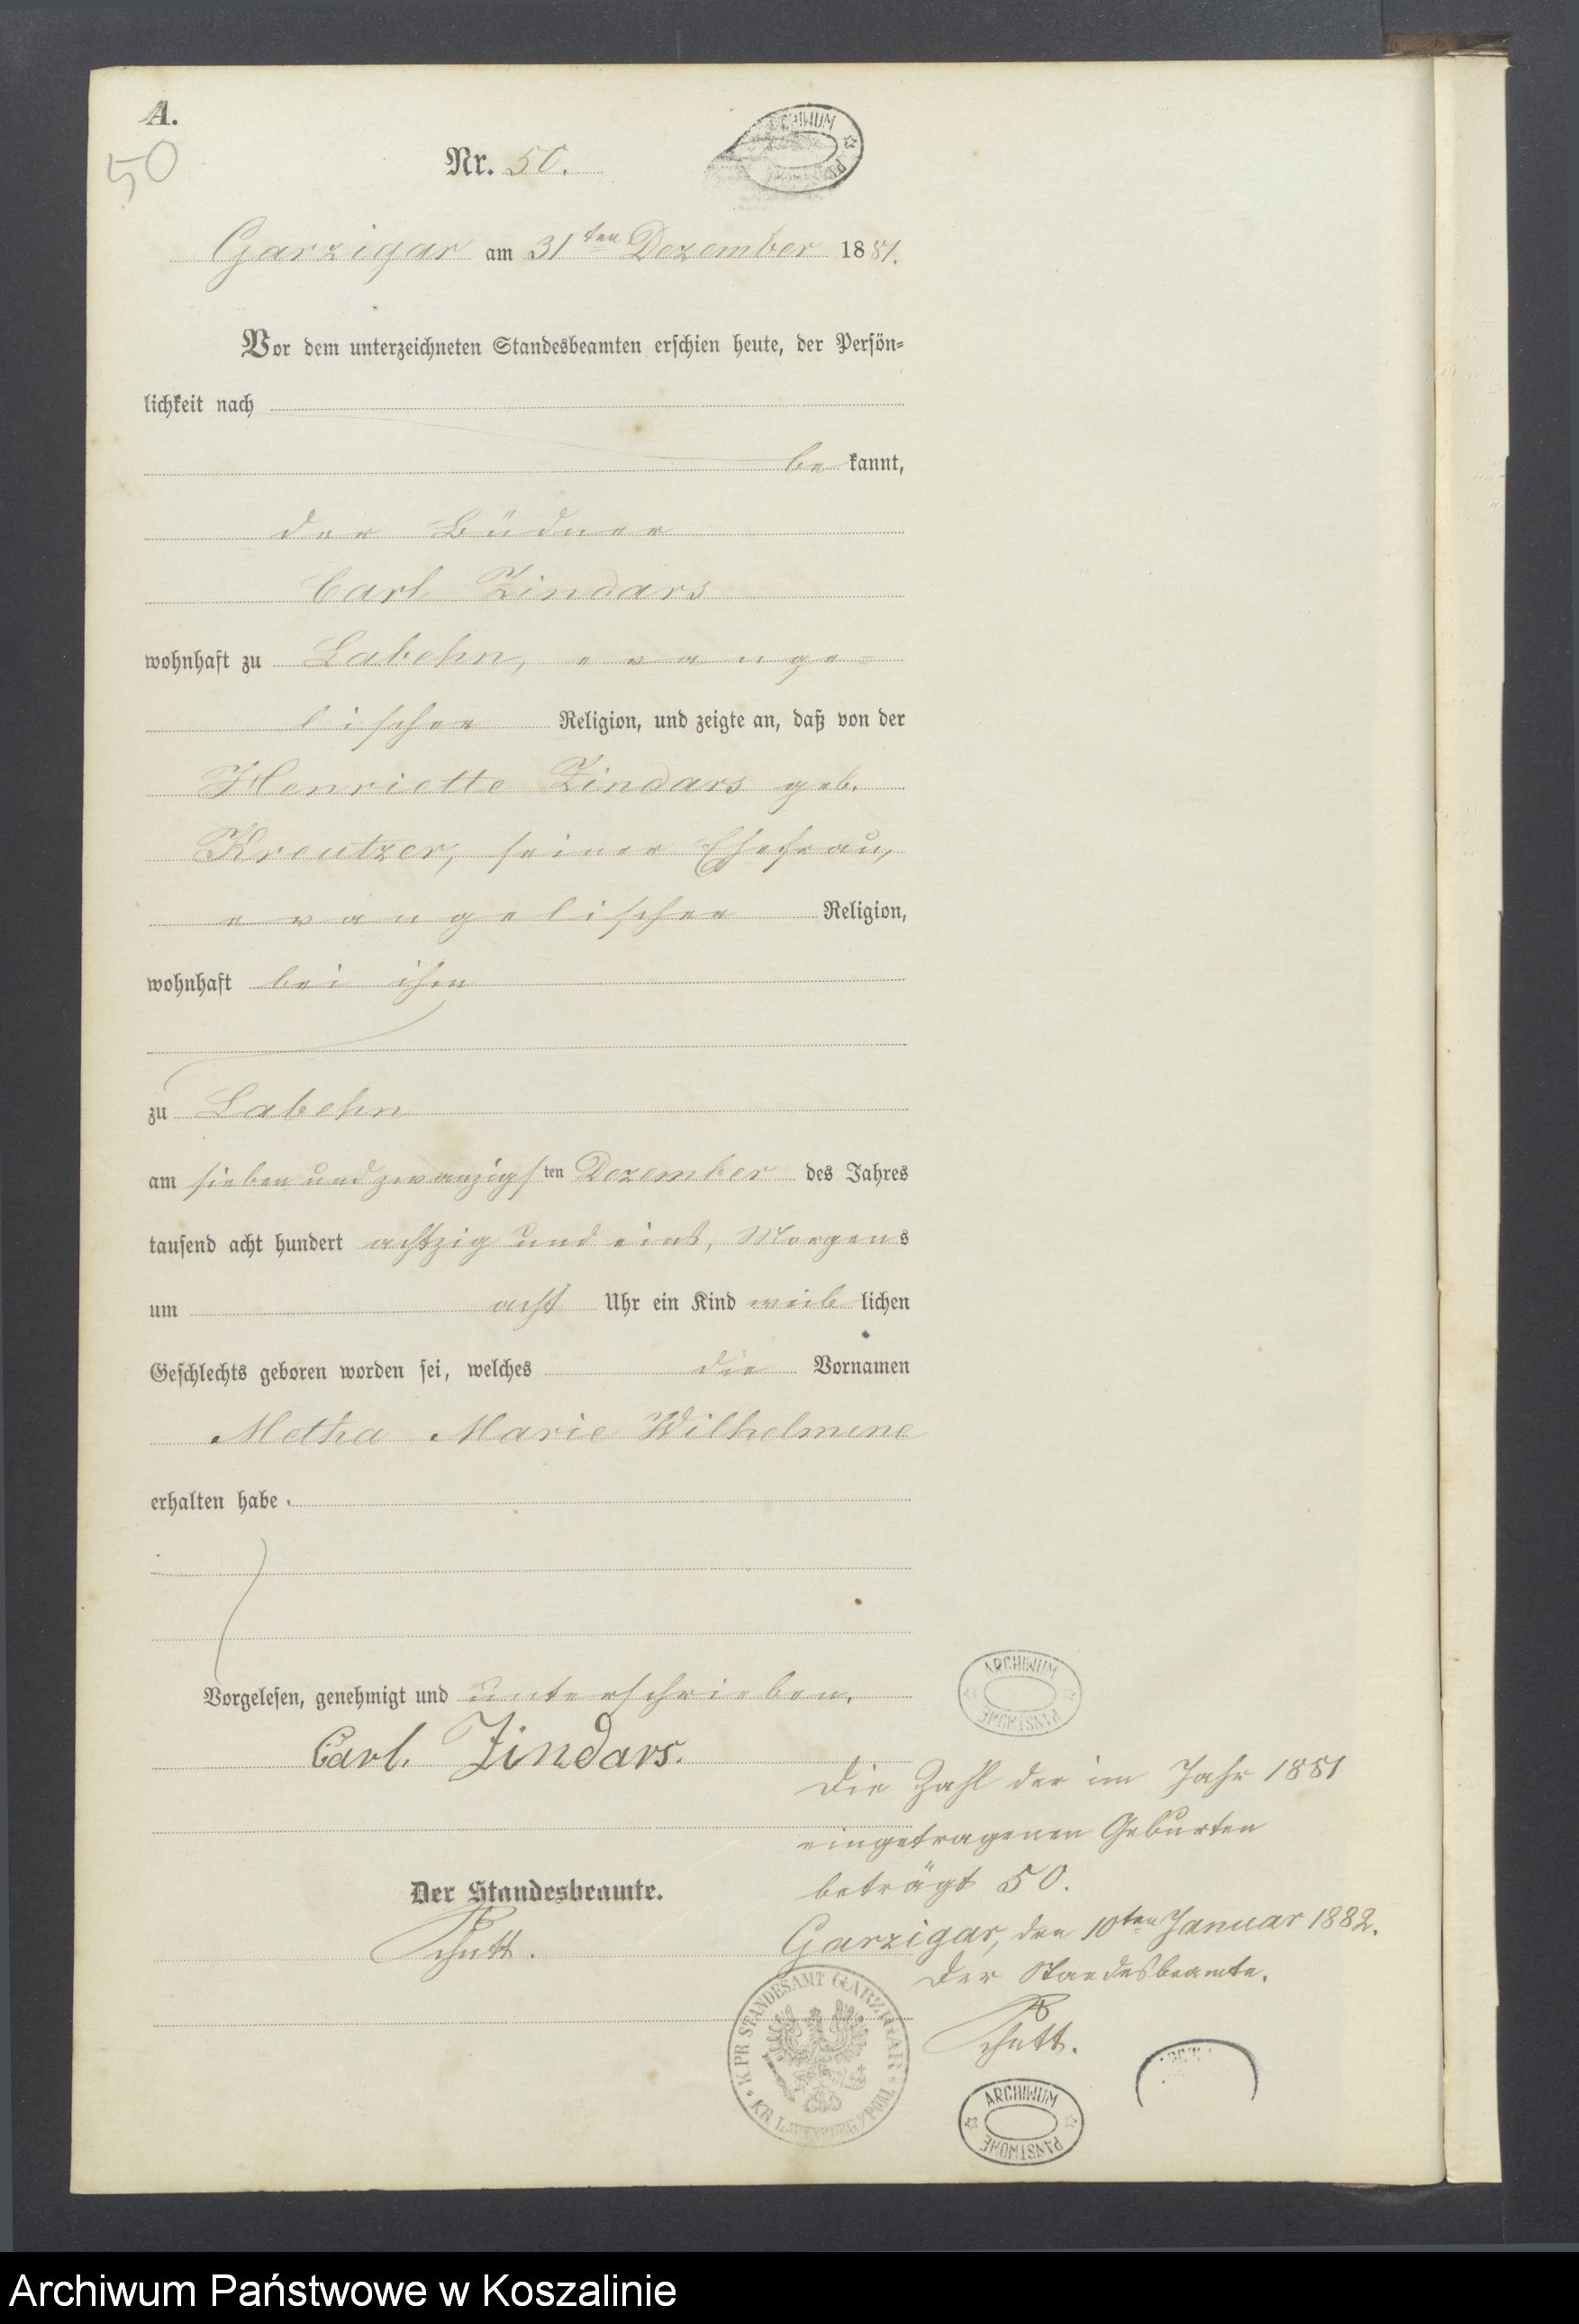 A.
50
Nr. 50.
ARCHIWUM
Garzigar am 31ten Dezember 1881.
Vor dem unterzeichneten Standesbeamten erschien heute, der Persön-
lichkeit nach
be kannt,
der Büdner
Carl Zindars
wohnhaft zu Labehn, evange-
lischer Religion, und zeigte an, daß von der
Henriette Zindars geb.
Kreutzer, seiner Ehefrau,
evangelischer Religion,
wohnhaft bei ihm
zu Labehn
am sieben und zwanzigsten Dezember des Jahres
tausend acht hundert achtzig und eins, Morgens
um acht Uhr ein Kind weib lichen
Geschlechts geboren worden sei, welches die Vornamen
Metha Marie Wilhelmine
erhalten habe.
Vorgelesen, genehmigt und unterschrieben.
Carl. Zindars.
ARCHIWUM PAŃSTWOWE
Die Zahl der im Jahr 1881
eingetragenen Geburten
beträgt 50.
Der Standesbeamte.
Schutt.
Garzigar, den 10ten Januar 1882.
Der Standesbeamte.
Schutt.
K. PR. STANDESAMT GARZIGAR
KR. LAUENBURG/POM.
ARCHIWUM PAŃSTWOWE
Archiwum Państwowe w Koszalinie